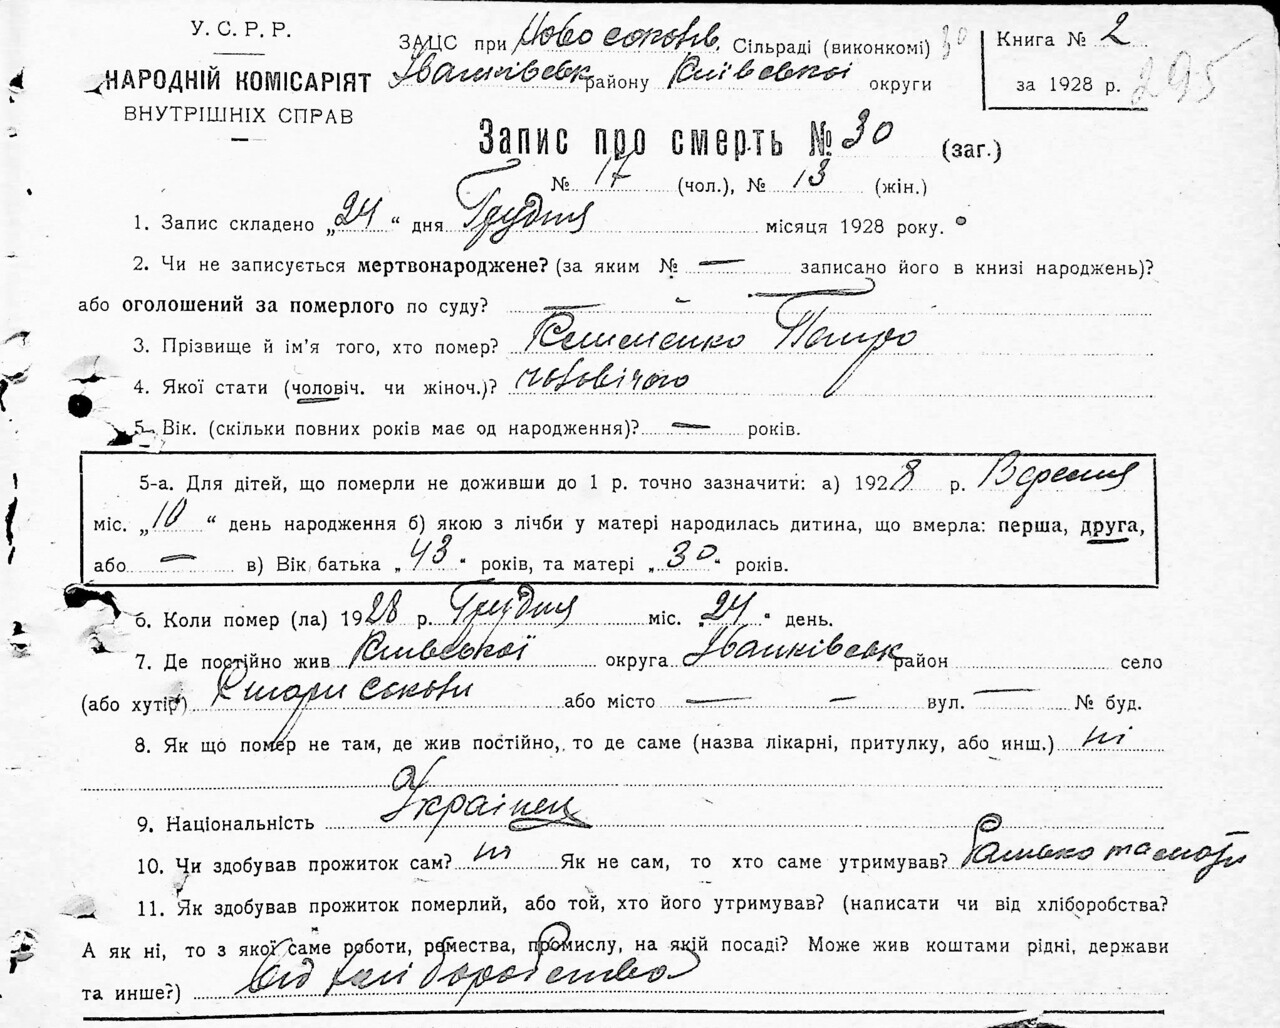 У. С. Р. Р.
НАРОДНІЙ КОМІСАРІЯТ
ВНУТРІШНІХ СПРАВ
ЗАЦС при Ново соков. Сільраді (виконкомі) 30
Іванківськ району Київської округи
Книга № 2
за 1928 р. 295
Запис про смерть № 30 (заг.)
№ 17 (чол.), № 13 (жін.)
1. Запис складено „24“ дня Грудня місяця 1928 року.
2. Чи не записується мертвонароджене? (за яким № — записано його в книзі народжень)?
або оголошений за померлого по суду? —
3. Прізвище й ім'я того, хто помер? Клименко Петро
4. Якої стати (чоловіч. чи жіноч.)? чоловічого
5. Вік. (скільки повних років має од народження)? — років.
5-а. Для дітей, що померли не доживши до 1 р. точно зазначити: а) 1928 р. Вересня
міс. „10“ день народження б) якою з лічби у матері народилась дитина, що вмерла: перша, друга,
або — в) Вік батька „43“ років, та матері „30“ років.
6. Коли помер (ла) 1928 р. Грудня міс. „24“ день.
7. Де постійно жив Київської округа Іванківськ район село
(або хутір) Стари Соколи або місто — — вул. — № буд.
8. Як що помер не там, де жив постійно, то де саме (назва лікарні, притулку, або инш.) ні
9. Національність Українец
10. Чи здобував прожиток сам? ні Як не сам, то хто саме утримував? Батько та мати
11. Як здобував прожиток померлий, або той, хто його утримував? (написати чи від хліборобства?
А як ні, то з якої саме роботи, ремества, промислу, на якій посаді? Може жив коштами рідні, держави
та инше?) від хліборобства